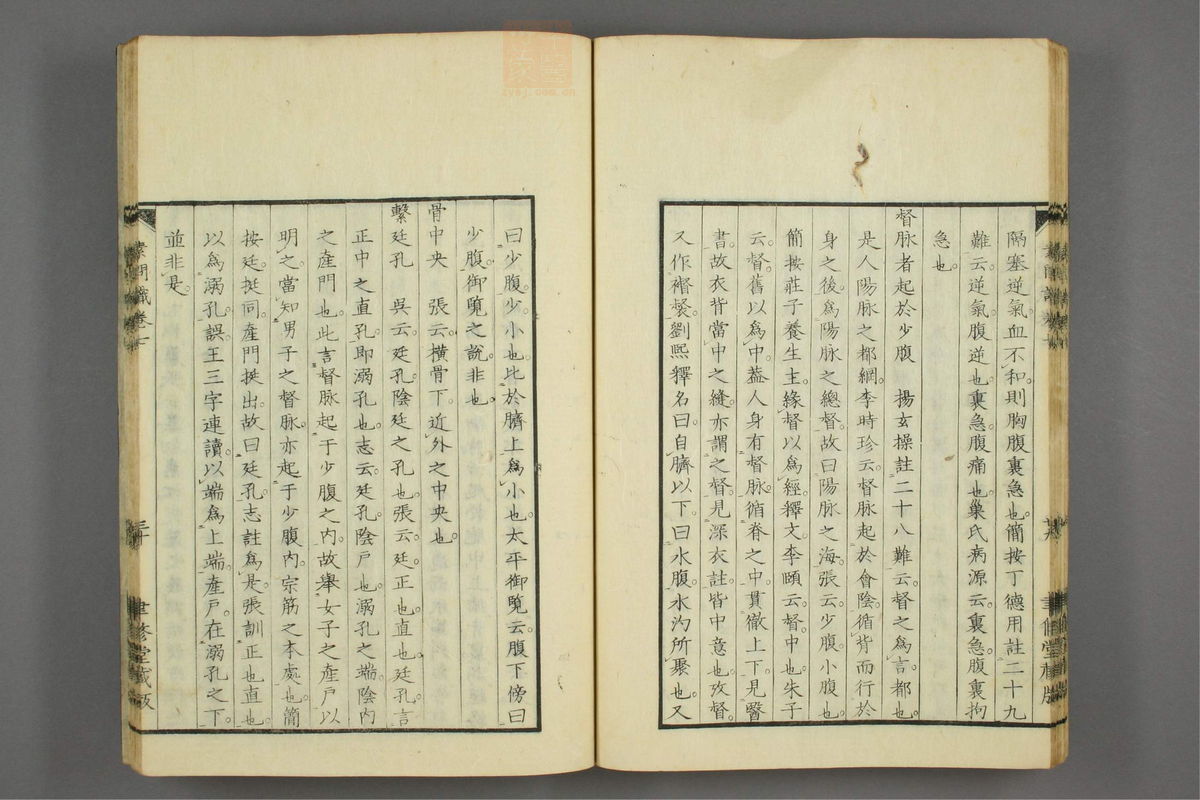 隔塞逆氣血不和則胸腹裏急也簡按丁德用註二十九
難云逆氣腹逆也裏急腹痛也巢氏病源云裏急腹裏拘
急也
督脉者起於少腹　楊玄操註二十八難云督之爲言都也
是人陽脉之都綱李時珍云督脉起於會陰循背而行於
身之後爲陽脉之總督故曰陽脉之海張云少腹小腹也
簡按莊子養生主緣督以爲經釋文李頤云督中也朱子
云督舊以爲中蓋人身有督脉循脊之中貫徹上下見醫
書故衣背當中之縫亦謂之督見深衣註皆中意也攷督
又作裻劉熙釋名曰自臍以下曰水腹水汋所聚也又
曰少腹少小也比於臍上爲小也太平御覽云腹下傍曰
少腹御覽之說非也
骨中央　張云橫骨下近外之中央也
繫廷孔　吳云廷孔陰廷之孔也張云廷正也直也廷孔言
正中之直孔即溺孔也志云廷孔陰戶也溺孔之端陰內
之產門也此言督脉起于少腹之內故舉女子之產戶以
明之當知男子之督脉亦起于少腹內宗筋之本處也簡
按廷挺同產門挺出故曰廷孔志註爲是張訓正也直也
以爲溺孔誤王三字連讀以端爲上端產戶在溺孔之下
並非是
素問識卷七
三十
聿修堂藏版
zysj.com.cn